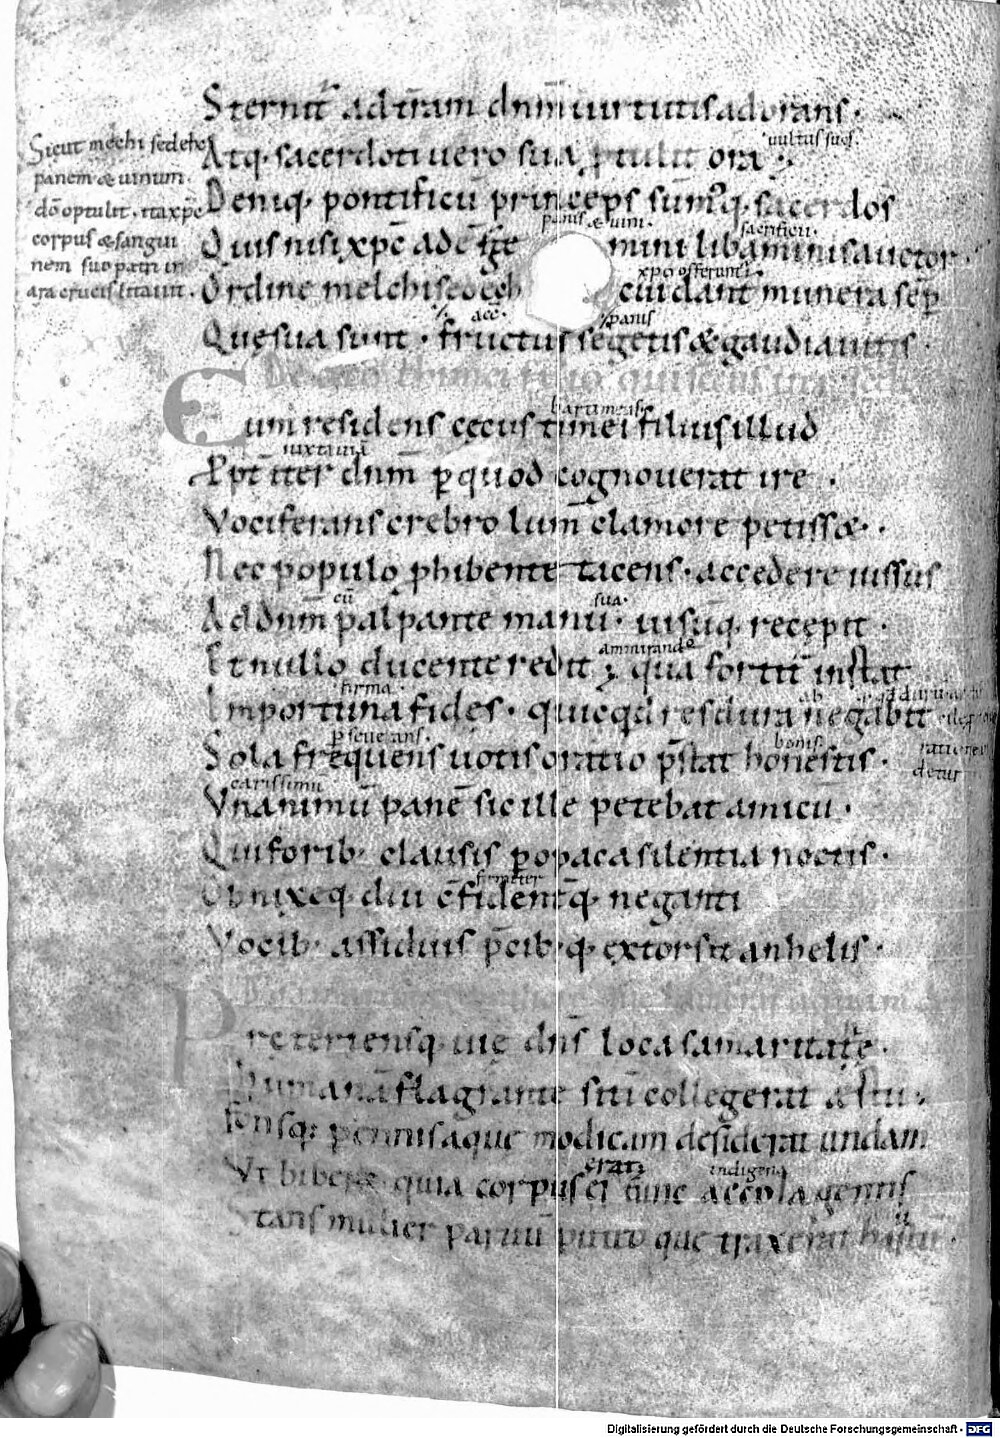 Sternit̄ ad t̄ram dn̄m uirtutis adorans ·
uultus sues.
Atq· sacerdoti uero sua p tulit ora
Sicut mechisedehc
panem & uinum ·
dō optulit · ita xp̄c
corpus & sangui
nem suo patri in
ara crucis litauit ·
Deniq· pontificū princeps summ'q· sacerdos
panis & uini · sacrificii ·
Quis nisi xp̄c adē ge mini libaminis auctor ·
xp̄o offerunt
Ordine melchisedech cui dant munera sēp
acc̄ · panis
Quę sua sunt · fructus segetis & gaudia uitis ·
De ceco
bartimeus
Cum residens cęcus timei filius illud
iuxta uia
Ppt̄ iter dn̄m p quod cognouerat ire ·
Vociferans crebro lum̄ clamore petiss& ·
Nec populo phibente tacens · accedere iussus
cū sua ·
Ad dn̄m palpante manu · uisūq· recępit ·
ammirando
Et nullo ducente redit ; qua fortit̄ instat
firma · ab
Importuna fides · quicqd res dura negabit
pseuerans · bonis
Sola frequens uotis oratio p̄stat honestis ·
detur
carissimū
Vnanimū panē sic ille petebat amicū ·
Qui forib· clausis p opaca silentia noctis ·
firmiter
Obnixeq· diu c̄fidentq̄· neganti
Vocib· assiduis p̄cib·q· extorsit anhelis ·
Pręteriensq· uię dn̄s loca samaritatę ·
Humanā flagrante siti collegerat ęstu ·
Fonsq: pennis aque modicam desiderat undam
erat indigena
Vt biber& quia corpus ei tunc accola gentis
Stans mulier paruū puteo que traxerat haustū ·
Digitalisierung gefördert durch die Deutsche Forschungsgemeinschaft - DFG